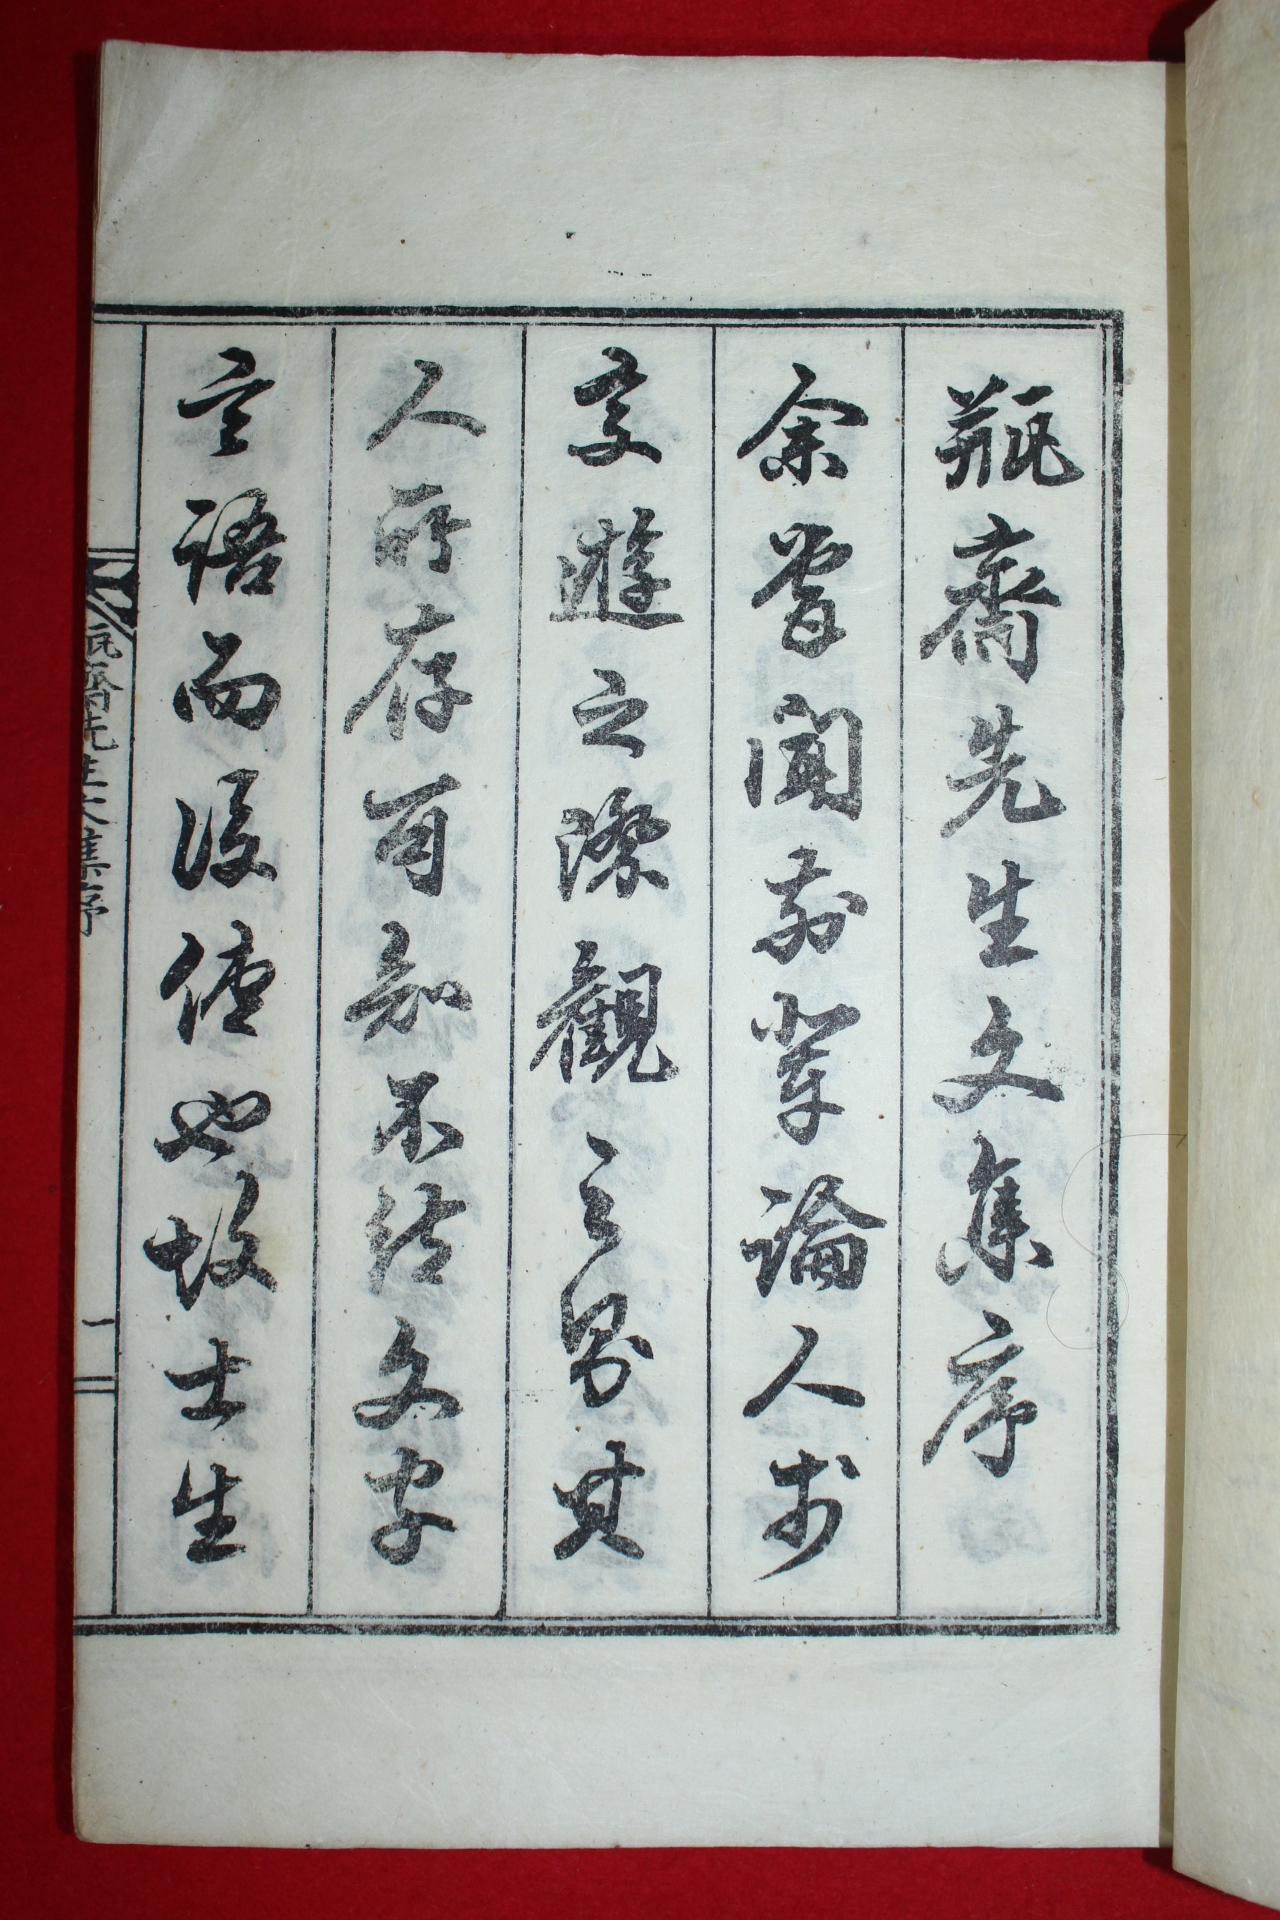 瓶齋先生文集序
余嘗聞前輩論人於
交遊之際觀之易其
人所存可知不待文字
言語而後傳也故士生
瓶齋先生文集序
一